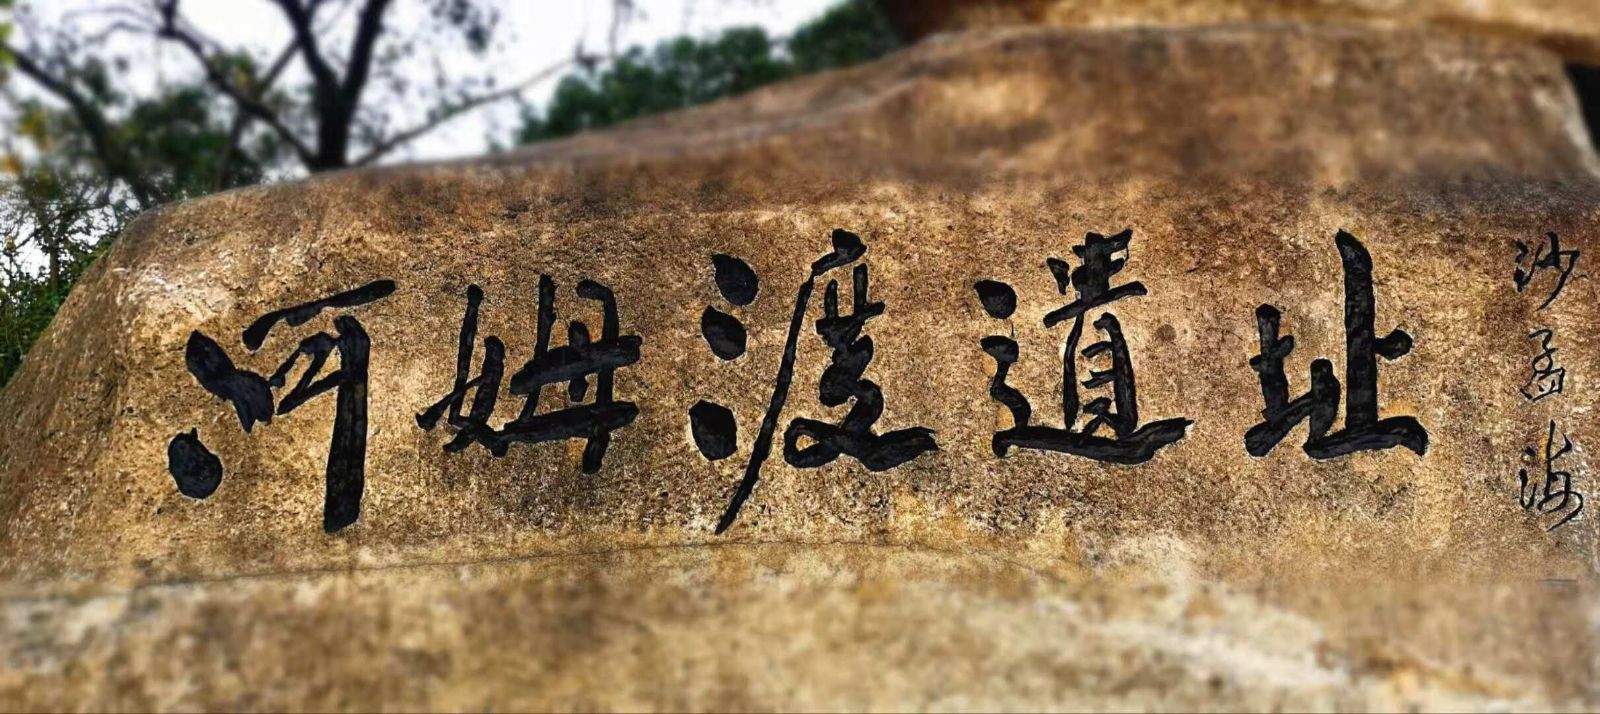 河姆渡遺址
沙孟海